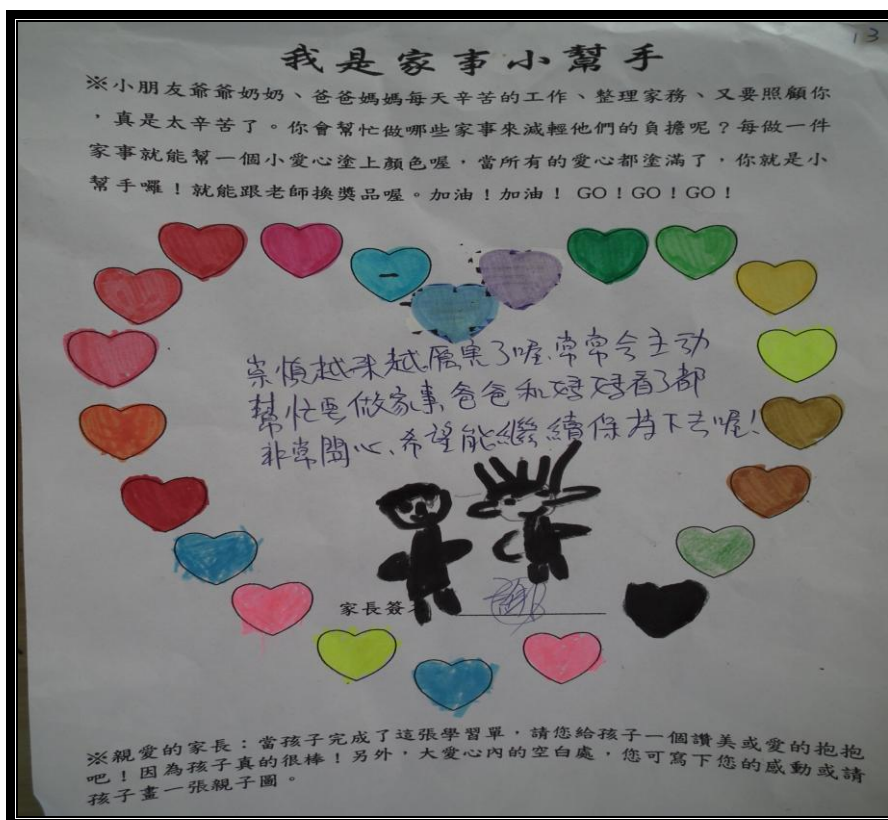 13
我是家事小幫手
※小朋友爺爺奶奶、爸爸媽媽每天辛苦的工作、整理家務、又要照顧你
,真是太辛苦了。你會幫忙做哪些家事來減輕他們的負擔呢?每做一件
家事就能幫一個小愛心塗上顏色喔,當所有的愛心都塗滿了,你就是小
幫手囉!就能跟老師換獎品喔。加油!加油! GO!GO!GO!
越來越厲害了喔、常常会主动
幫忙要做家事,爸爸和媽媽看了都
非常開心、希望能繼續保持下去喔!
家長簽
※親愛的家長:當孩子完成了這張學習單,請您給孩子一個讚美或愛的抱抱
吧!因為孩子真的很棒!另外,大愛心內的空白處,您可寫下您的感動或請
孩子畫一張親子圖。